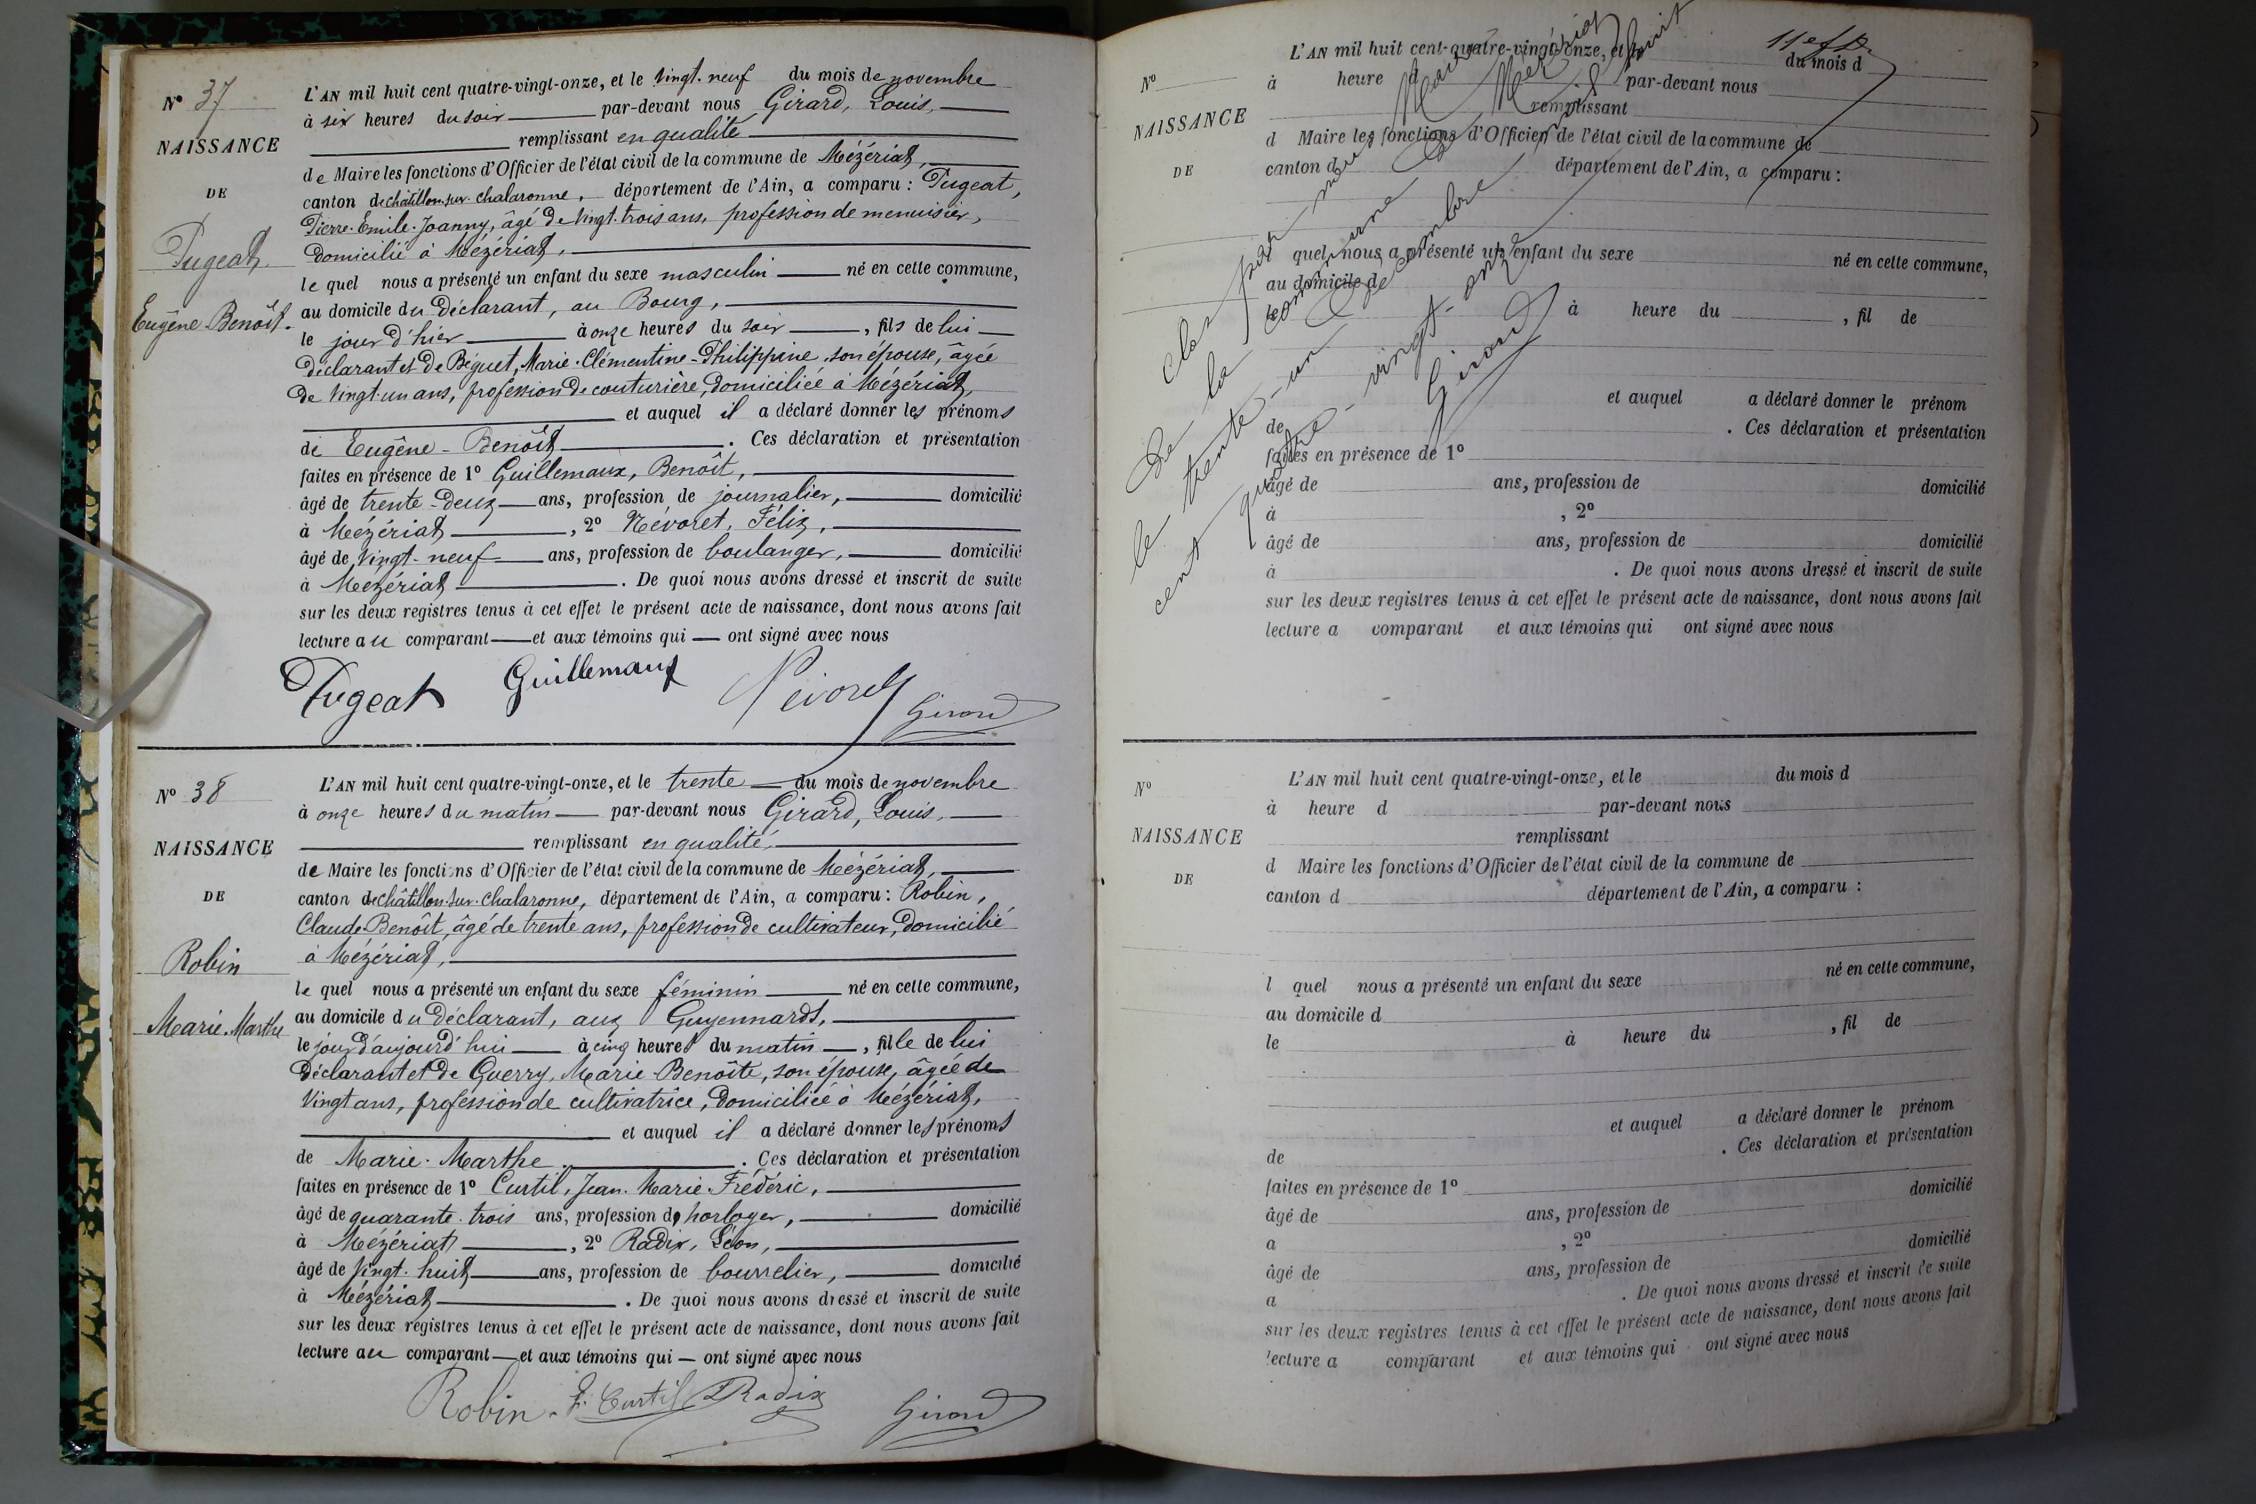 N° 37
NAISSANCE
DE
Pugeat
Eugêne-Benoît.
L'AN mil huit cent quatre-vingt-onze, et le vingt-neuf du mois de novembre
à six heures du soir par-devant nous Girard, Louis,
remplissant en qualité
de Maire les fonctions d'Officier de l'état civil de la commune de Mézériat,
canton de châtillon-sur-chalaronne, département de l'Ain, a comparu : Pugeat,
Pierre-Emile-Joanny, âgé de vingt-trois ans, profession de menuisier,
domicilié à Mézériat,
le quel nous a présenté un enfant du sexe masculin né en cette commune,
au domicile du déclarant, au Bourg,
le jour d'hier à onze heures du soir, fils de lui
déclarant et de Béguet, Marie-Clémentine-Philippine, son épouse, âgée
de vingt-un ans, profession de couturière, domiciliée à Mézériat,
et auquel il a déclaré donner les prénoms
de Eugêne-Benoît. Ces déclaration et présentation
faites en présence de 1° Guillemaux, Benoît,
âgé de trente-deux ans, profession de journalier, domicilié
à Mézériat, 2° Névoret, Félix,
âgé de vingt-neuf ans, profession de boulanger, domicilié
à Mézériat. De quoi nous avons dressé et inscrit de suite
sur les deux registres tenus à cet effet le présent acte de naissance, dont nous avons fait
lecture au comparant et aux témoins qui ont signé avec nous
Pugeat Guillemaux Névoret Girard
N° 38
NAISSANCE
DE
Robin
Marie-Marthe
L'AN mil huit cent quatre-vingt-onze, et le trente du mois de novembre
à onze heures du matin par-devant nous Girard, Louis,
remplissant en qualité
de Maire les fonctions d'Officier de l'état civil de la commune de Mézériat,
canton de châtillon-sur-chalaronne, département de l'Ain, a comparu : Robin,
Claude-Benoît, âgé de trente ans, profession de cultivateur, domicilié
à Mézériat,
le quel nous a présenté un enfant du sexe féminin né en cette commune,
au domicile du déclarant, aux Guyennards,
le jour d'aujourd'hui à cinq heures du matin, fille de lui
déclarant et de Guerry, Marie-Benoîte, son épouse, âgée de
vingt ans, profession de cultivatrice, domiciliée à Mézériat,
et auquel il a déclaré donner les prénoms
de Marie-Marthe. Ces déclaration et présentation
faites en présence de 1° Curtil, Jean-Marie-Frédéric,
âgé de quarante-trois ans, profession de horloger, domicilié
à Mézériat, 2° Radix, Léon,
âgé de vingt-huit ans, profession de bourrelier, domicilié
à Mézériat. De quoi nous avons dressé et inscrit de suite
sur les deux registres tenus à cet effet le présent acte de naissance, dont nous avons fait
lecture au comparant et aux témoins qui ont signé avec nous
Robin F. Curtil L Radix Girard
N°
NAISSANCE
DE
L'AN mil huit cent-quatre-vingt-onze, et le du mois d
à heure d par-devant nous
remplissant
d Maire les fonctions d'Officier de l'état civil de la commune de
canton d département de l'Ain, a comparu :
quel nous a présenté un enfant du sexe né en cette commune,
au domicile d
le à heure du , fil de
et auquel a déclaré donner le prénom
de . Ces déclaration et présentation
faites en présence de 1°
âgé de ans, profession de domicilié
à , 2°
âgé de ans, profession de domicilié
à . De quoi nous avons dressé et inscrit de suite
sur les deux registres tenus à cet effet le présent acte de naissance, dont nous avons fait
lecture a comparant et aux témoins qui ont signé avec nous
clos par nous Maire
de la commune de Mézériat
le trente-un décembre mil huit
cent quatre-vingt-onze
Girard
N°
NAISSANCE
DE
L'AN mil huit cent quatre-vingt-onze, et le du mois d
à heure d par-devant nous
remplissant
d Maire les fonctions d'Officier de l'état civil de la commune de
canton d département de l'Ain, a comparu :
l quel nous a présenté un enfant du sexe né en cette commune,
au domicile d
le à heure du , fil de
et auquel a déclaré donner le prénom
de . Ces déclaration et présentation
faites en présence de 1°
âgé de ans, profession de domicilié
a , 2°
âgé de ans, profession de domicilié
a . De quoi nous avons dressé et inscrit de suite
sur les deux registres tenus à cet effet le présent acte de naissance, dont nous avons fait
lecture a comparant et aux témoins qui ont signé avec nous